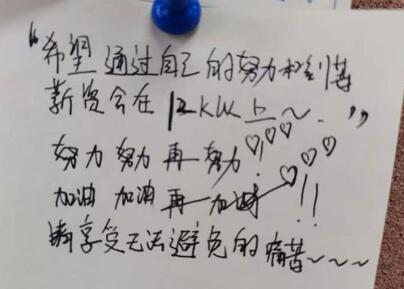 “希望通过自己的努力得到
薪资会在12KW上~.”
努力 努力 再努力!
加油 加油 再加油!!
请享受无法避免的痛苦~~~